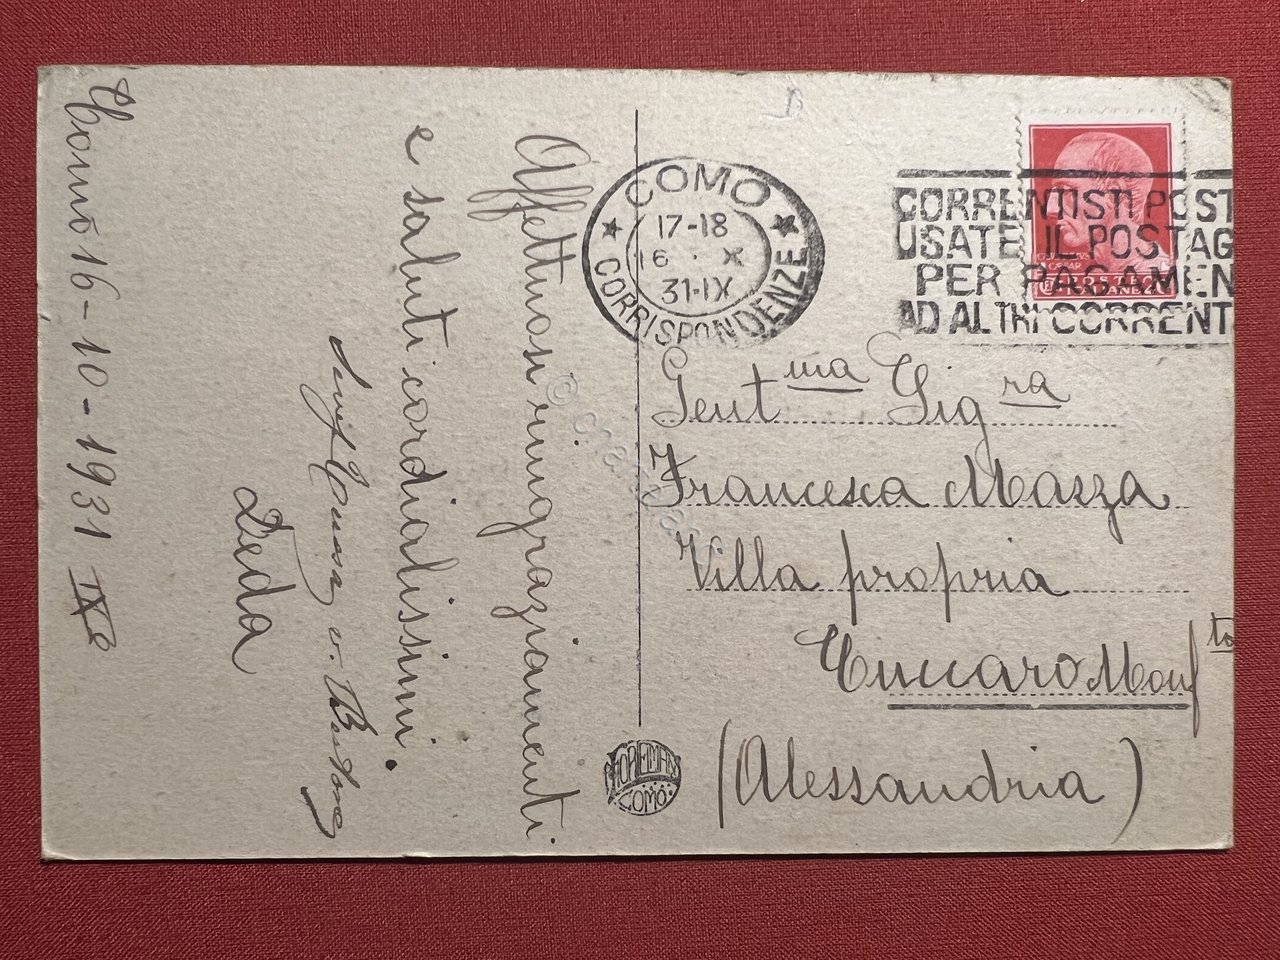 Como 16-10-1931 IXº
Affettuosi ringraziamenti
e saluti cordialissimi.
Leda
COMO
17-18
16 · X
31·IX
CORRISPONDENZE
CORRENTISTI POST
USATE IL POSTAG
PER PAGAMEN
AD ALTRI CORRENT
Gent ma Sig ra
Francesca Mazza
Villa propria
Cuccaro Monf to
(Alessandria)
COMO